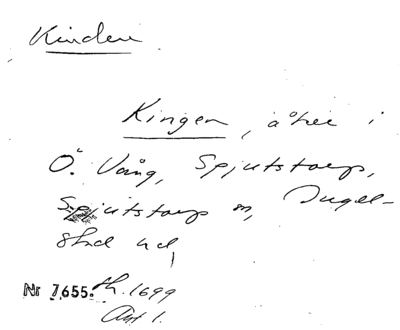 Kinden
Kingen, åker i
Ö. Vång, Spjutstorp,
Spjutstorp sn, Ingel-
stad hd,
Nr 7655. th. 1699
Akt 1.